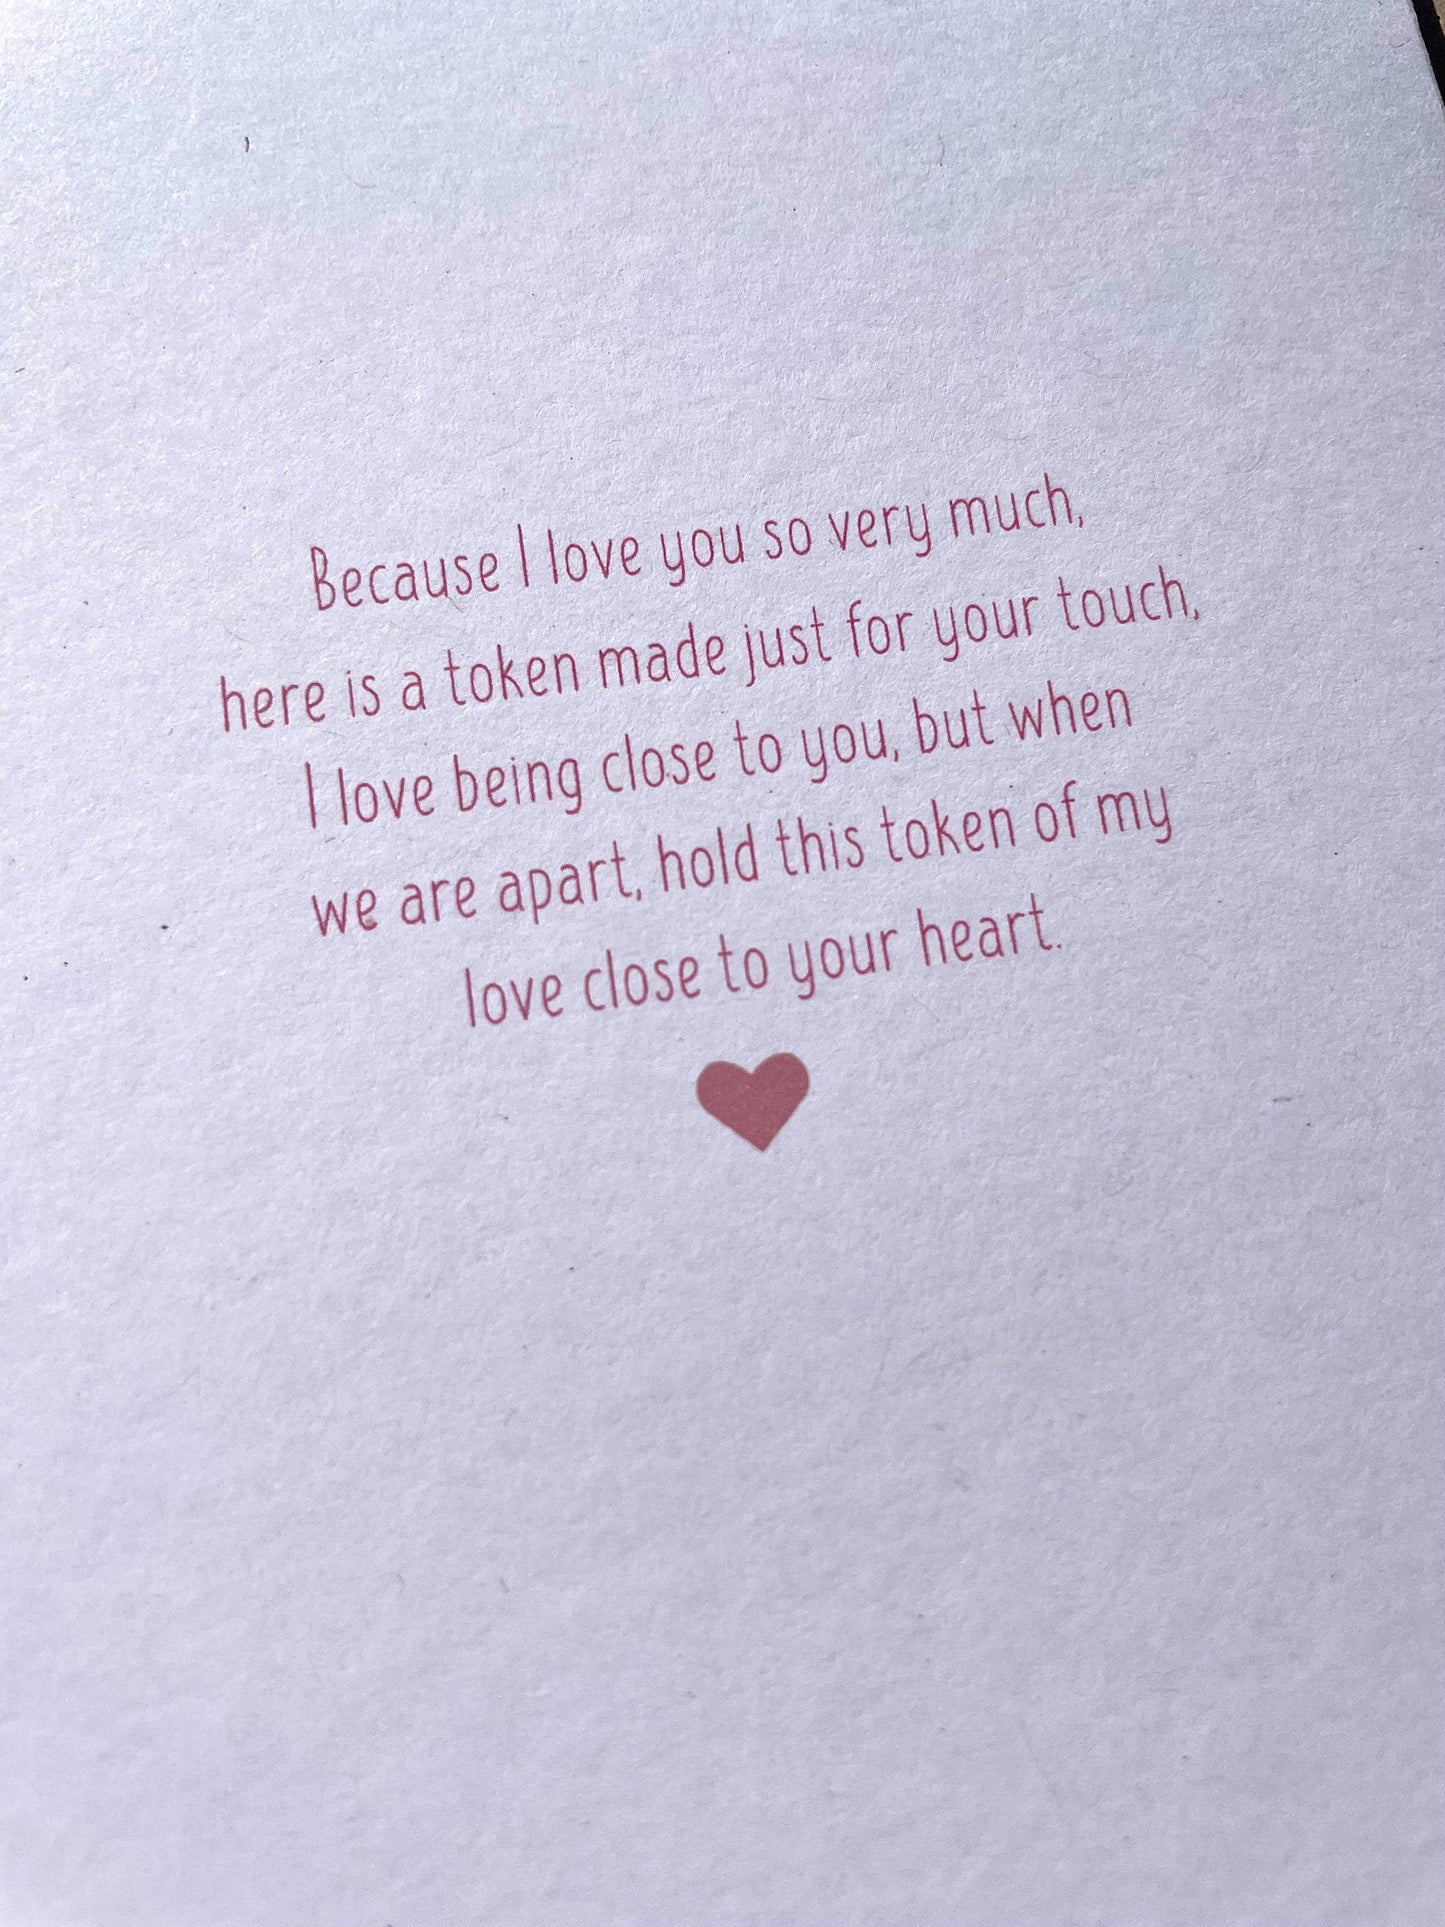 Because I love you so very much,
here is a token made just for your touch,
I love being close to you, but when
we are apart, hold this token of my
love close to your heart.